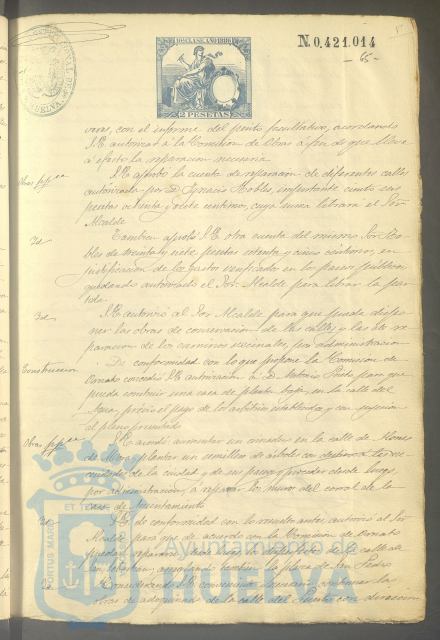 N.0,421.014
65
10ª CLASE. AÑO 1886
2 PESETAS
HUELVA
veras, con el informe del perito facultativo, acordando
S.E. autorizar á la Comision de Obras á fin de que lleve
á efecto la reparacion necesaria
Obras pp.cas
S.E. aprobó la cuenta de reparacion de diferentes calles
autorizada por D. Ignacio Robles, importante ciento seis
pesetas ochenta y siete centimos, cuya suma librará el Señor
Alcalde
Id
Tambien aprobó S.E. otra cuenta del mismo Sor. Ro-
bles de treinta y siete pesetas setenta y cinco céntimos, en
justificacion de los gastos verificados en los paseos públicos
quedando autorizado el Sor. Alcalde para librar la par-
tida
Id
S.E. autorizó al Sor Alcalde para que pueda dispo-
ner las obras de conservacion de las calles, y las de re-
paracion de los caminos vecinales, por administracion
Construccion
De conformidad con lo que propone la Comision de
Ornato concedió S.E. autorizacion á D. Antonio para que
pueda contruir una casa de planta baja, en la calle del
previo el pago de los arbitrios establecidos y con sujecion
al plano presentado
Obras pp.cas
S.E. acordó aumentar un en la calle de Alonso
de Mora, plantar un semillero de árboles con destino á las ne-
cesidades de la ciudad y de sus paseos, y proceder desde luego,
por administracion, á reparar los muros del corral de la
casa de Ayuntamiento
Id
S.E. de conformidad con lo autorizó al Señor
Alcalde para que de acuerdo con la Comision de Ornato
pueda reparar
San Sebastian, arreglando tambien la plaza de San Pedro
Id
continuar las
obras de adoquinado de la calle del Puerto con direccion
PORTUS MARIS
ET TERRAE
Ayuntamiento de
HUELVA